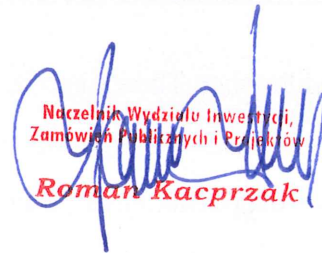 Naczelnik Wydziału Inwestycji,
Zamówień Publicznych i Projektów
Roman Kacprzak